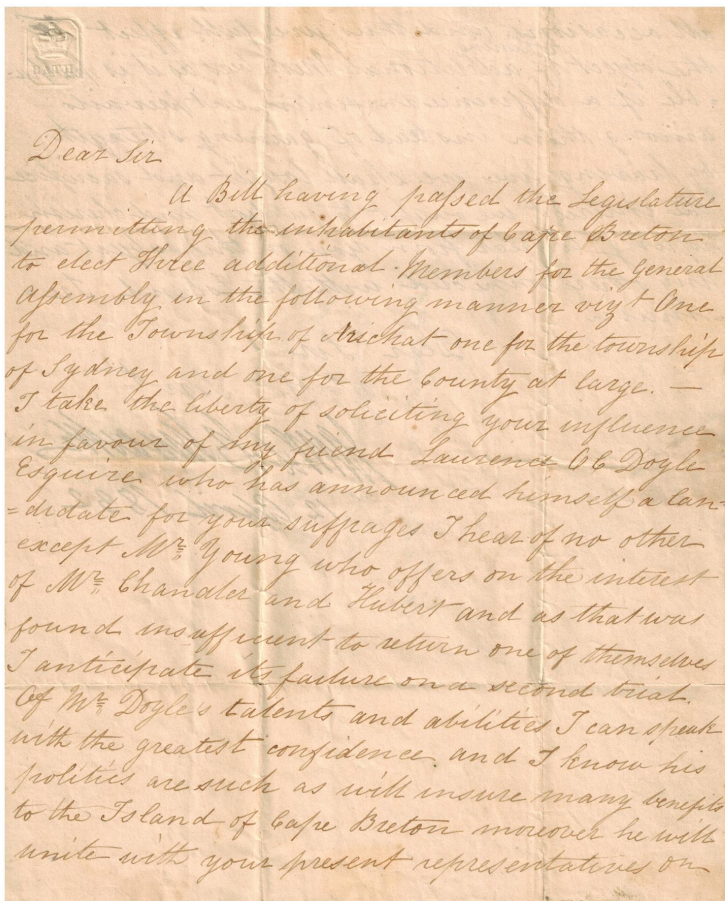 BATH
Dear Sir
A Bill having passed the Legislature
permitting the inhabitants of Cape Breton
to elect Three additional Members for the General
Assembly in the following manner vizt One
for the Township of Arichat one for the township
of Sydney and one for the County at large. —
I take the liberty of soliciting your influence
in favour of my friend Laurence OC Doyle
Esquire who has announced himself a Can-
=didate for your suffrages I hear of no other
except Mr. Young who offers on the interest
of Mr. Chandler and Hubert and as that was
found insufficient to return one of themselves
I anticipate its failure on a second trial.
Of Mr. Doyle's talents and abilities I can speak
with the greatest confidence and I know his
politics are such as will insure many benefits
to the Island of Cape Breton moreover he will
unite with your present representatives on